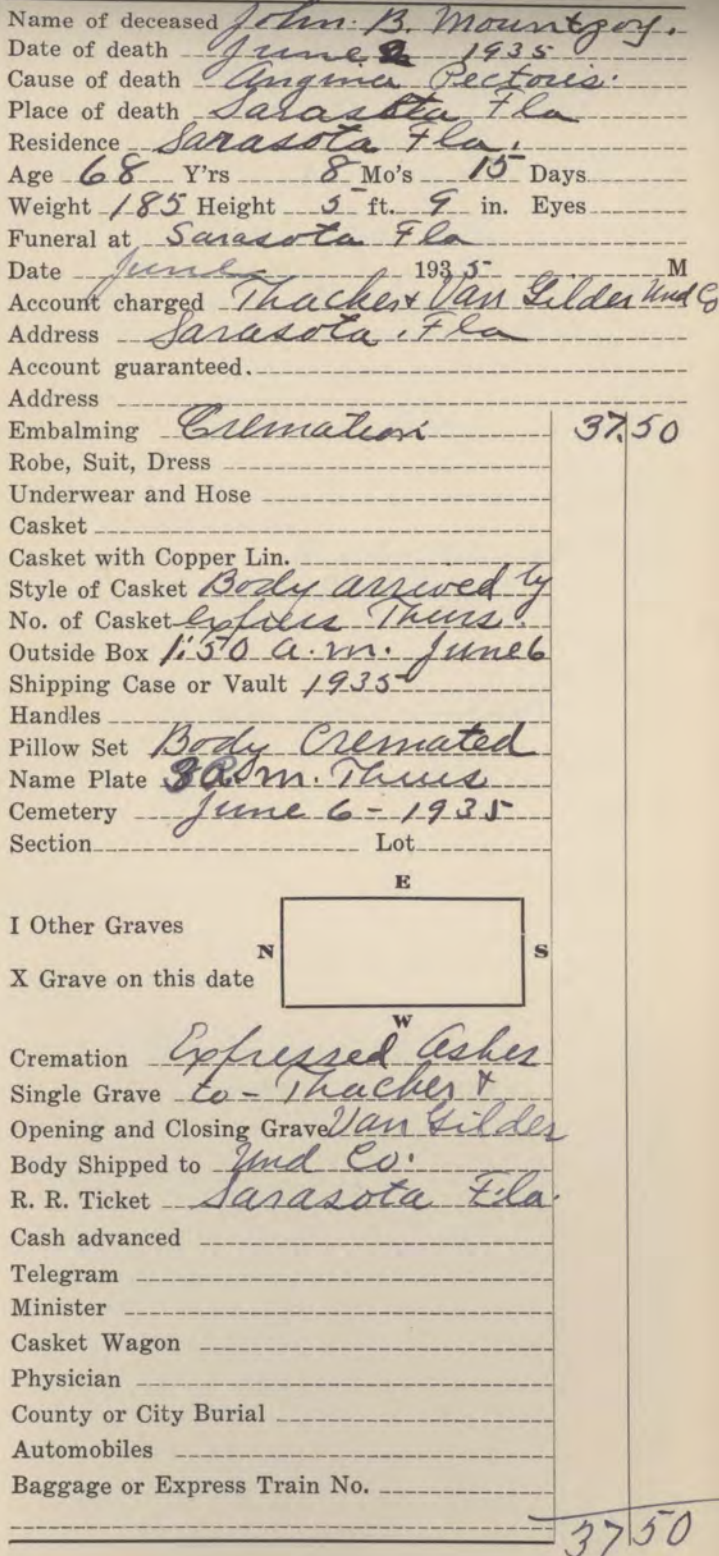 Name of deceased John. B. Mountzoy.
Date of death June 1935
Cause of death Angina Pectoris.
Place of death Sarasota Fla
Residence Sarasota Fla.
Age 68 Y'rs 8 Mo's 15 Days
Weight 185 Height 5 ft. 9 in. Eyes
Funeral at Sarasota Fla
Date June 1935 M
Account charged Thacker & Van Gilder Und Co
Address Sarasota, Fla
Account guaranteed.
Address
Embalming Cremation 37.50
Robe, Suit, Dress
Underwear and Hose
Casket
Casket with Copper Lin.
Style of Casket Body arrived by
No. of Casket express Thurs.
Outside Box 1:50 a.m. June 6
Shipping Case or Vault 1935
Handles
Pillow Set Body Cremated
Name Plate m. Thurs
Cemetery June 6 - 1935
Section Lot
E
I Other Graves
N S
X Grave on this date
W
Cremation Expressed Ashes
Single Grave to - Thacker &
Opening and Closing Grave Van Gilder
Body Shipped to Und Co.
R. R. Ticket Sarasota Fla.
Cash advanced
Telegram
Minister
Casket Wagon
Physician
County or City Burial
Automobiles
Baggage or Express Train No.
37 50